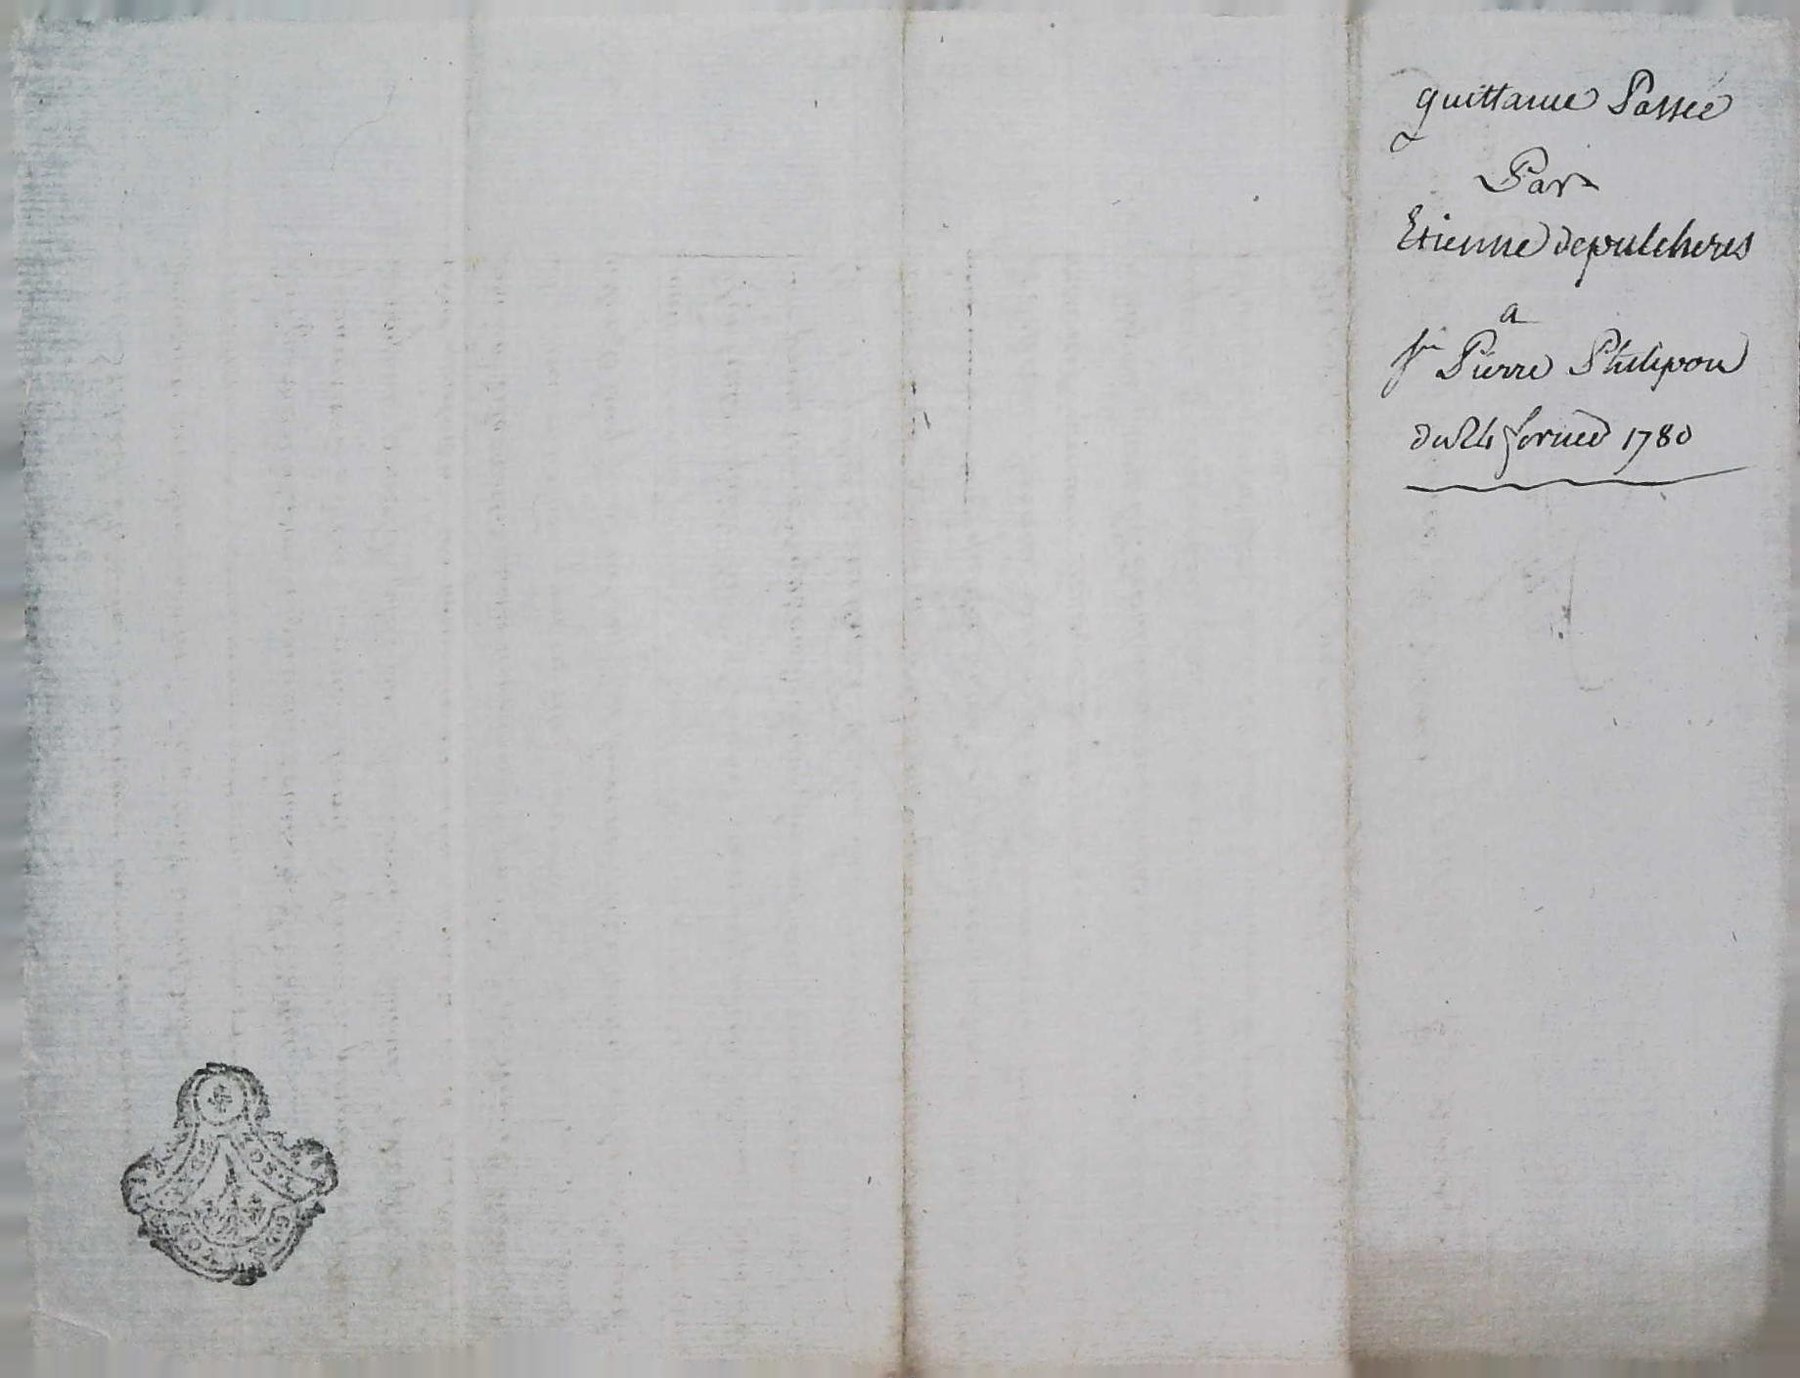 quittance Passée
Par
Etienne depulcheres
a
sr Pierre Philipon
du 24 fevrier 1780